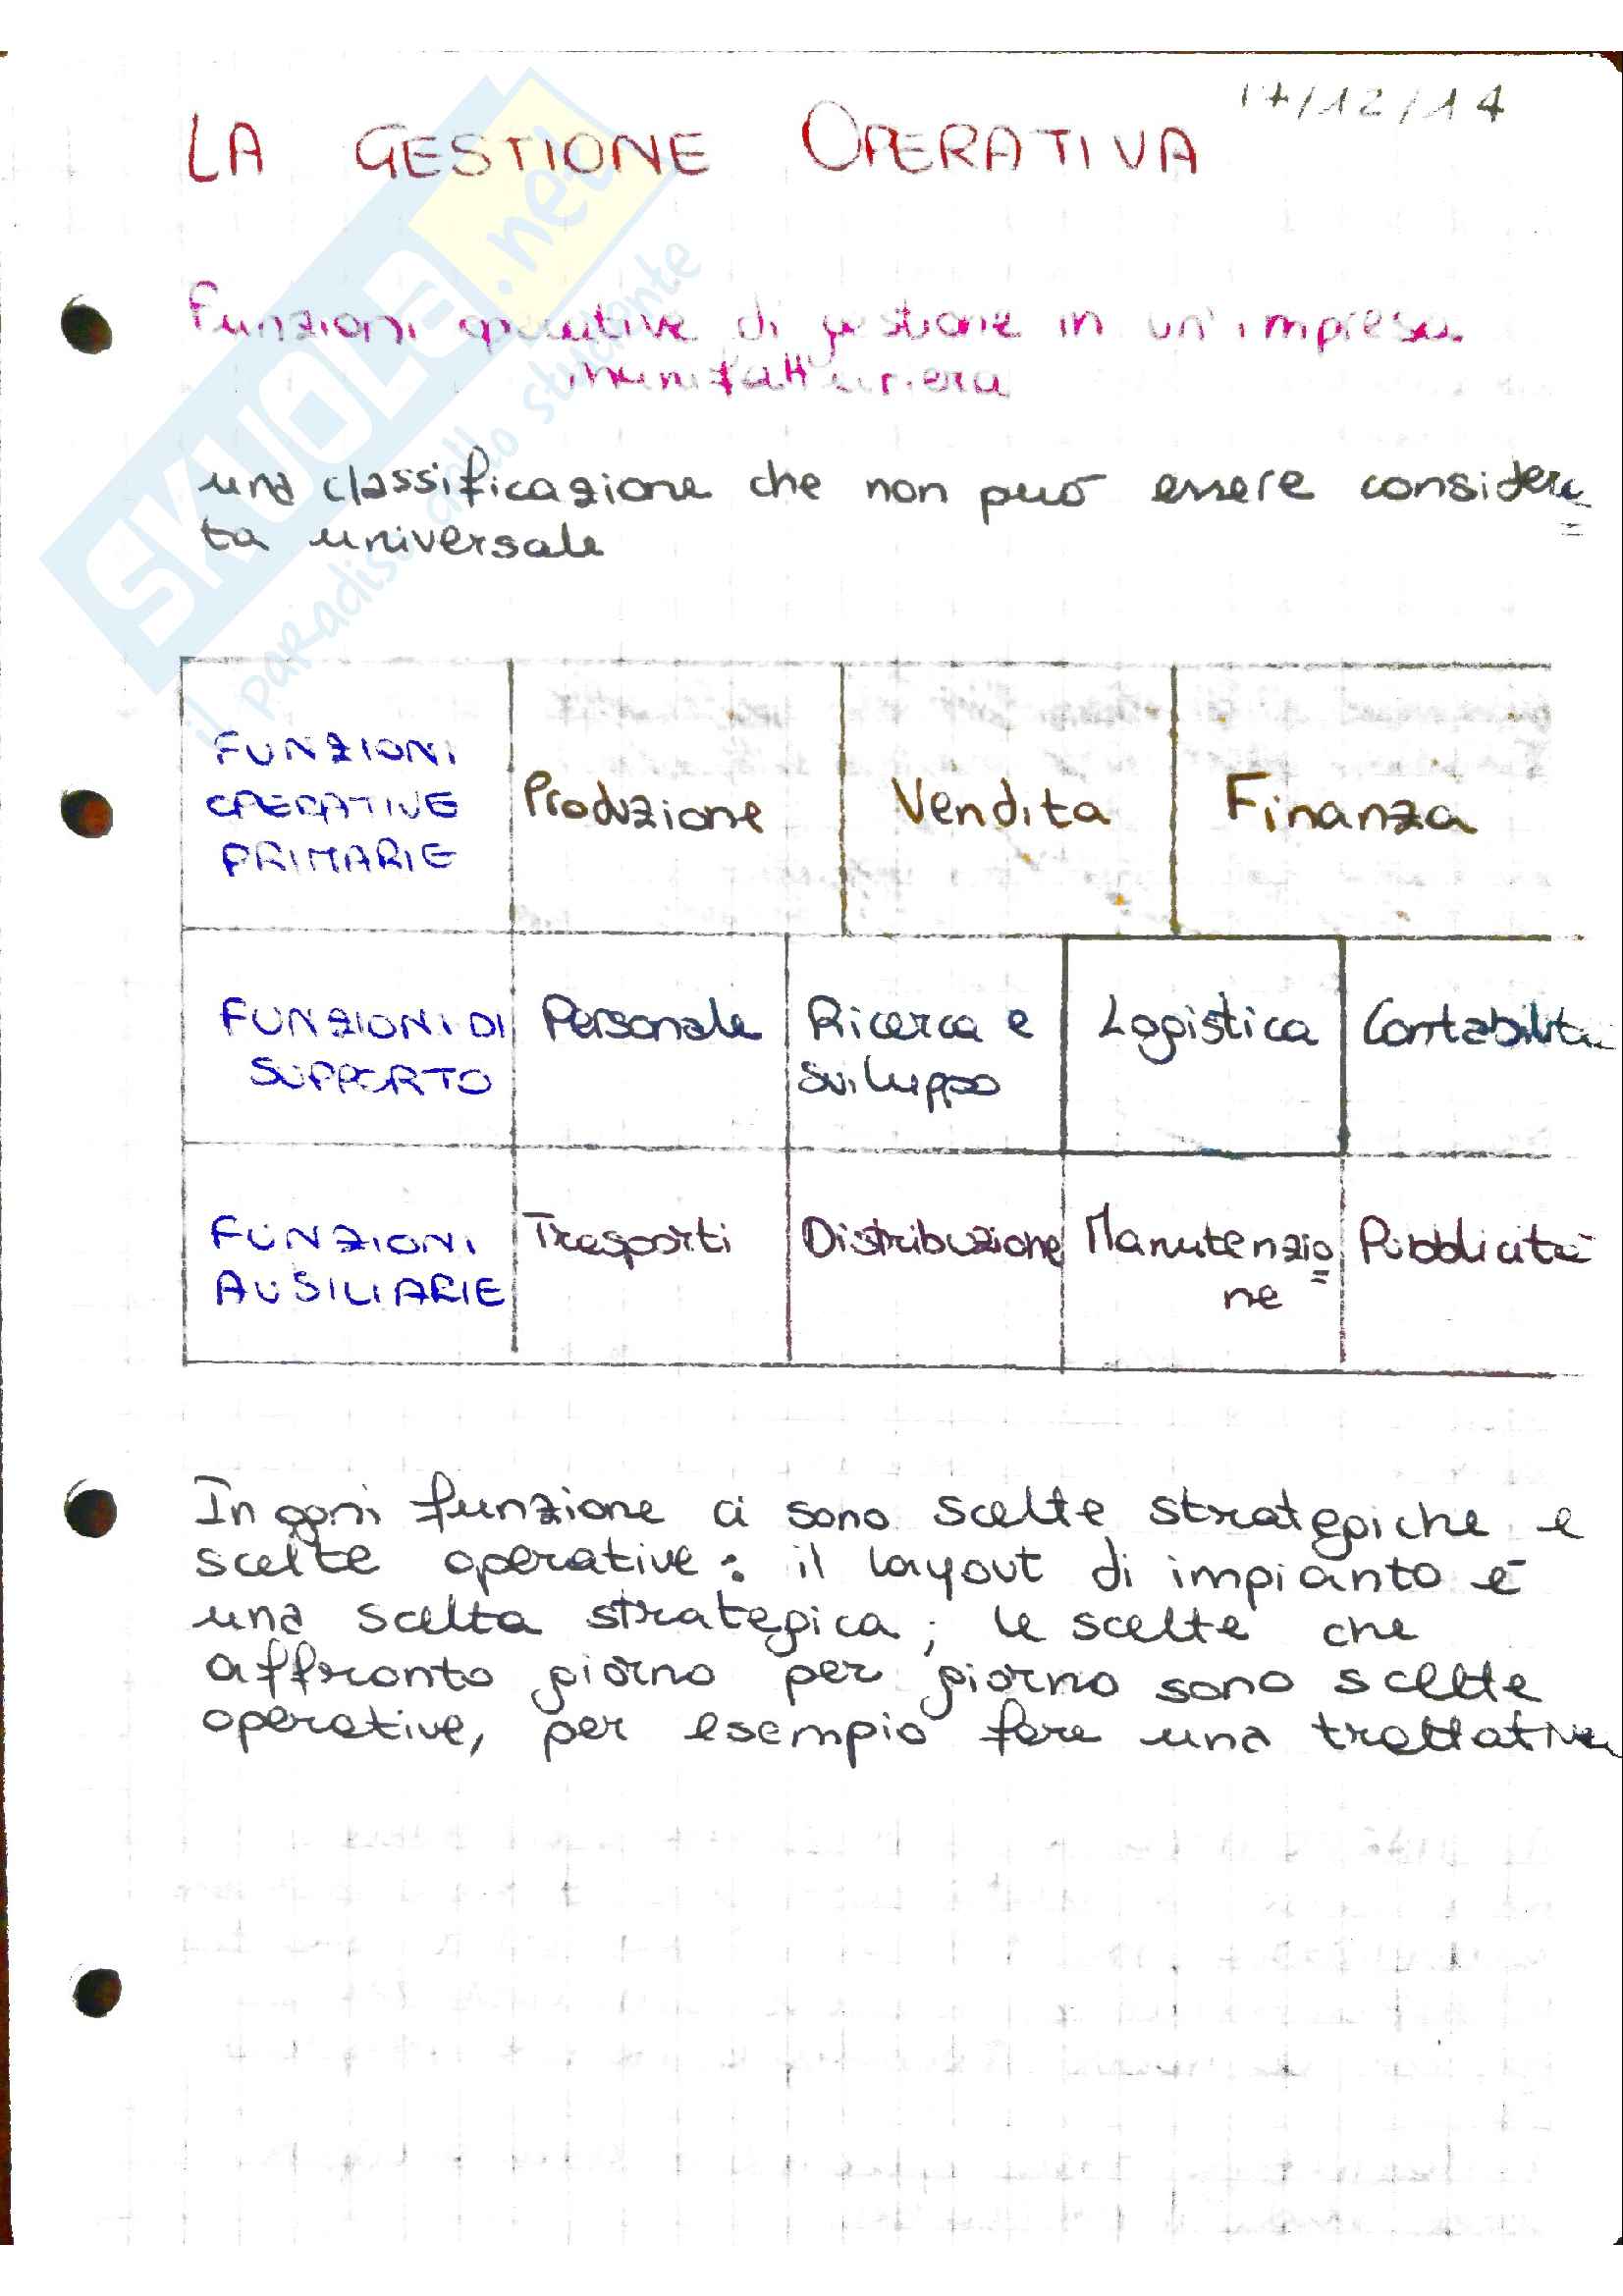 17/12/14
LA GESTIONE OPERATIVA
Funzioni operative di gestione in un'impresa
manifatturiera
una classificazione che non può essere considera=
ta universale
FUNZIONI
OPERATIVE
PRIMARIE
Produzione
Vendita
Finanza
FUNZIONI DI
SUPPORTO
Personale
Ricerca e
sviluppo
Logistica
Contabilità
FUNZIONI
AUSILIARIE
Trasporti
Distribuzione
Manutenzio=
ne
Pubblicità
In ogni funzione ci sono scelte strategiche e
scelte operative: il layout di impianto è
una scelta strategica; le scelte che
affronto giorno per giorno sono scelte
operative, per esempio fare una trattativa
SKUOLA.net
il paradiso dello studente